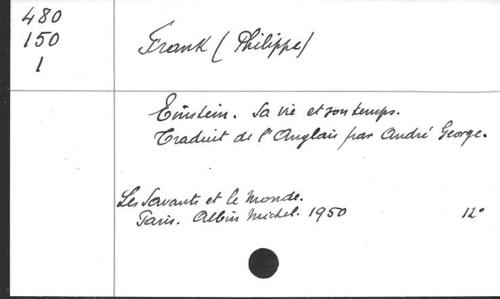 480
150
1
Frank (Philippe)
Einstein. Sa vie et son temps.
Traduit de l'Anglais par André George.
Les Savants et le Monde.
Paris. Albin Michel. 1950 12°